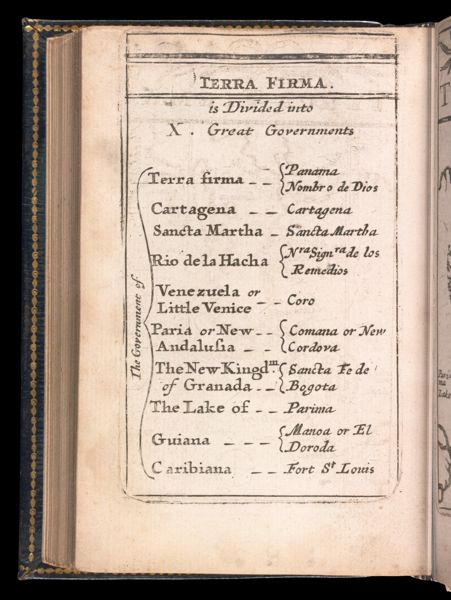 TERRA FIRMA.
is Divided into
X. Great Governments
The Government of
Terra firma – – { Panama
Nombro de Dios
Cartagena – – Cartagena
Sancta Martha – Sancta Martha
Rio de la Hacha { Nra Signra de los
Remedios
Venezuela or
Little Venice – – Coro
Paria or New – – { Comana or New
Andalusia – – Cordova
The New Kingdm. { Sancta Fe de
of Granada – – Bogota
The Lake of – – Parima
Guiana – – – { Manoa or El
Doroda
Caribiana – – Fort St Louis